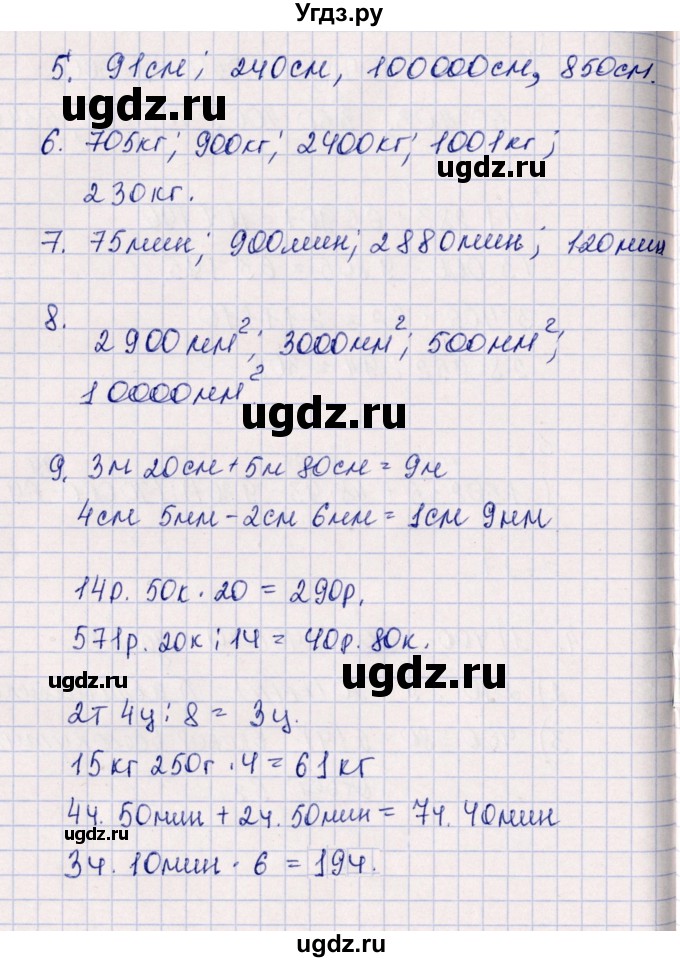 Угдз.ру
5. 91см; 240см, 100000см, 850см.
ugdz.ru
6. 705кг; 900кг; 2400кг; 1001кг;
ugdz.ru
230кг.
7. 75мин; 900мин; 2880мин; 120мин
8.
2900мм²; 3000мм²; 500мм²;
10000мм²
ugdz.ru
9. 3м 20см + 5м 80см = 9м
4см 5мм - 2см 6мм = 1см 9мм
14р. 50к · 20 = 290р.
571р. 20к : 14 = 40р. 80к.
ugdz.ru
ugdz.ru
2т 4ц : 8 = 3ц.
15кг 250г · 4 = 61кг
4ч. 50мин + 2ч. 50мин = 7ч. 40мин
ugdz.ru
3ч. 10мин · 6 = 19ч.
ugdz.ru